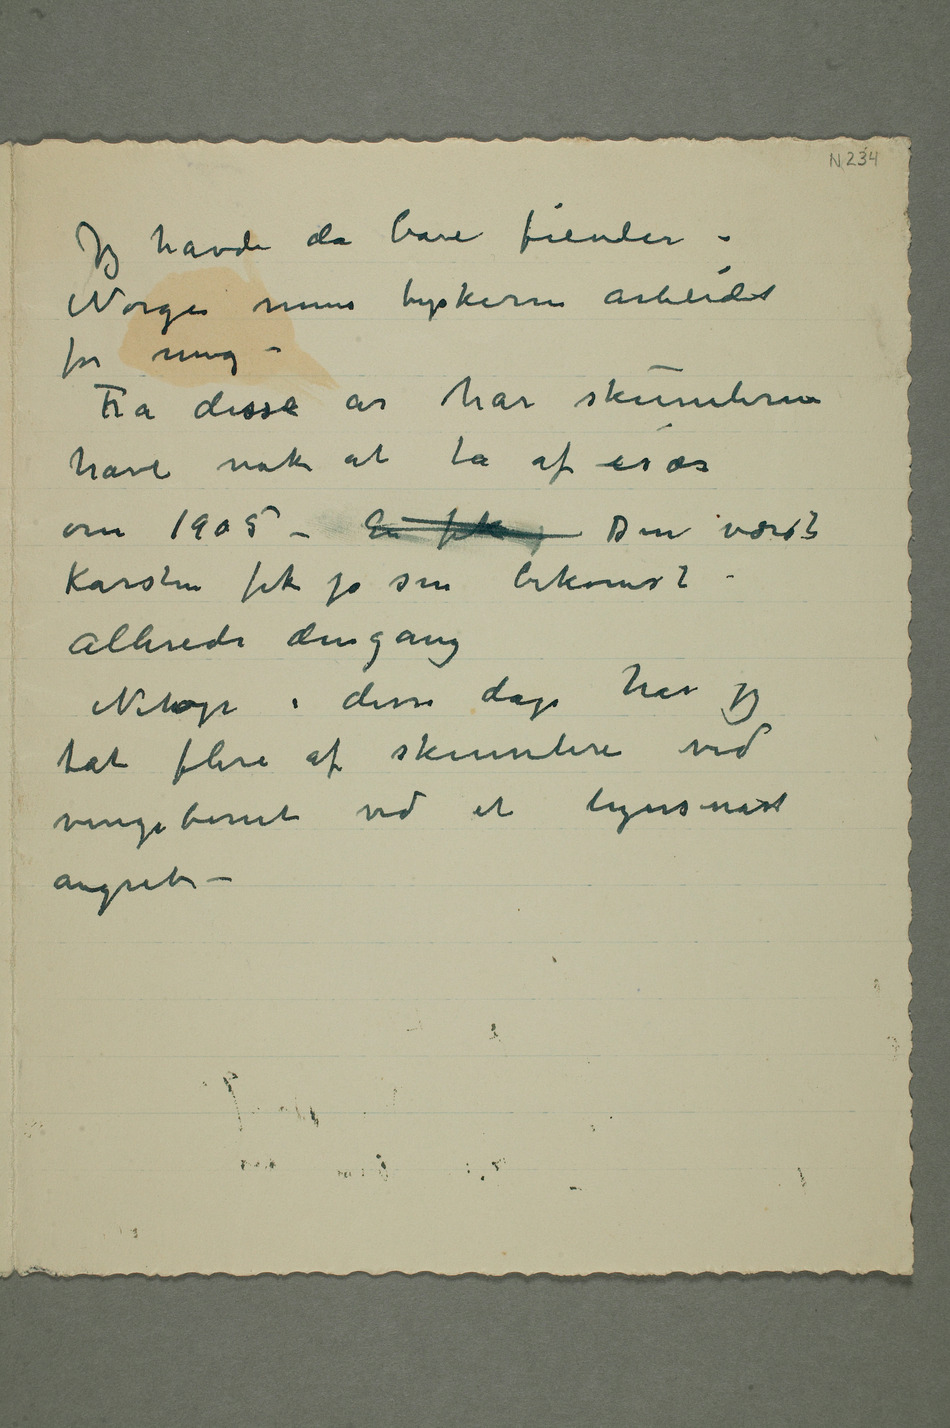 N 234
Jeg havde da bare fiender –
Norge mens tyskerne arbeidet
for mig –
Fra disse år har skumlerne
havt nok at ta af især
om 1905 – En fik Den værste
Karsten fik jo sin bekomst –
allerede dengang
Netop i disse dage har jeg
tat flere af skumlere ved
vingebenet ved et lynsnart
angreb –